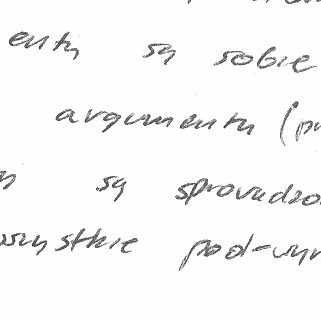 enty są sobie
argumenty (pr
są sprowadzo
wszystkie pod-wyr